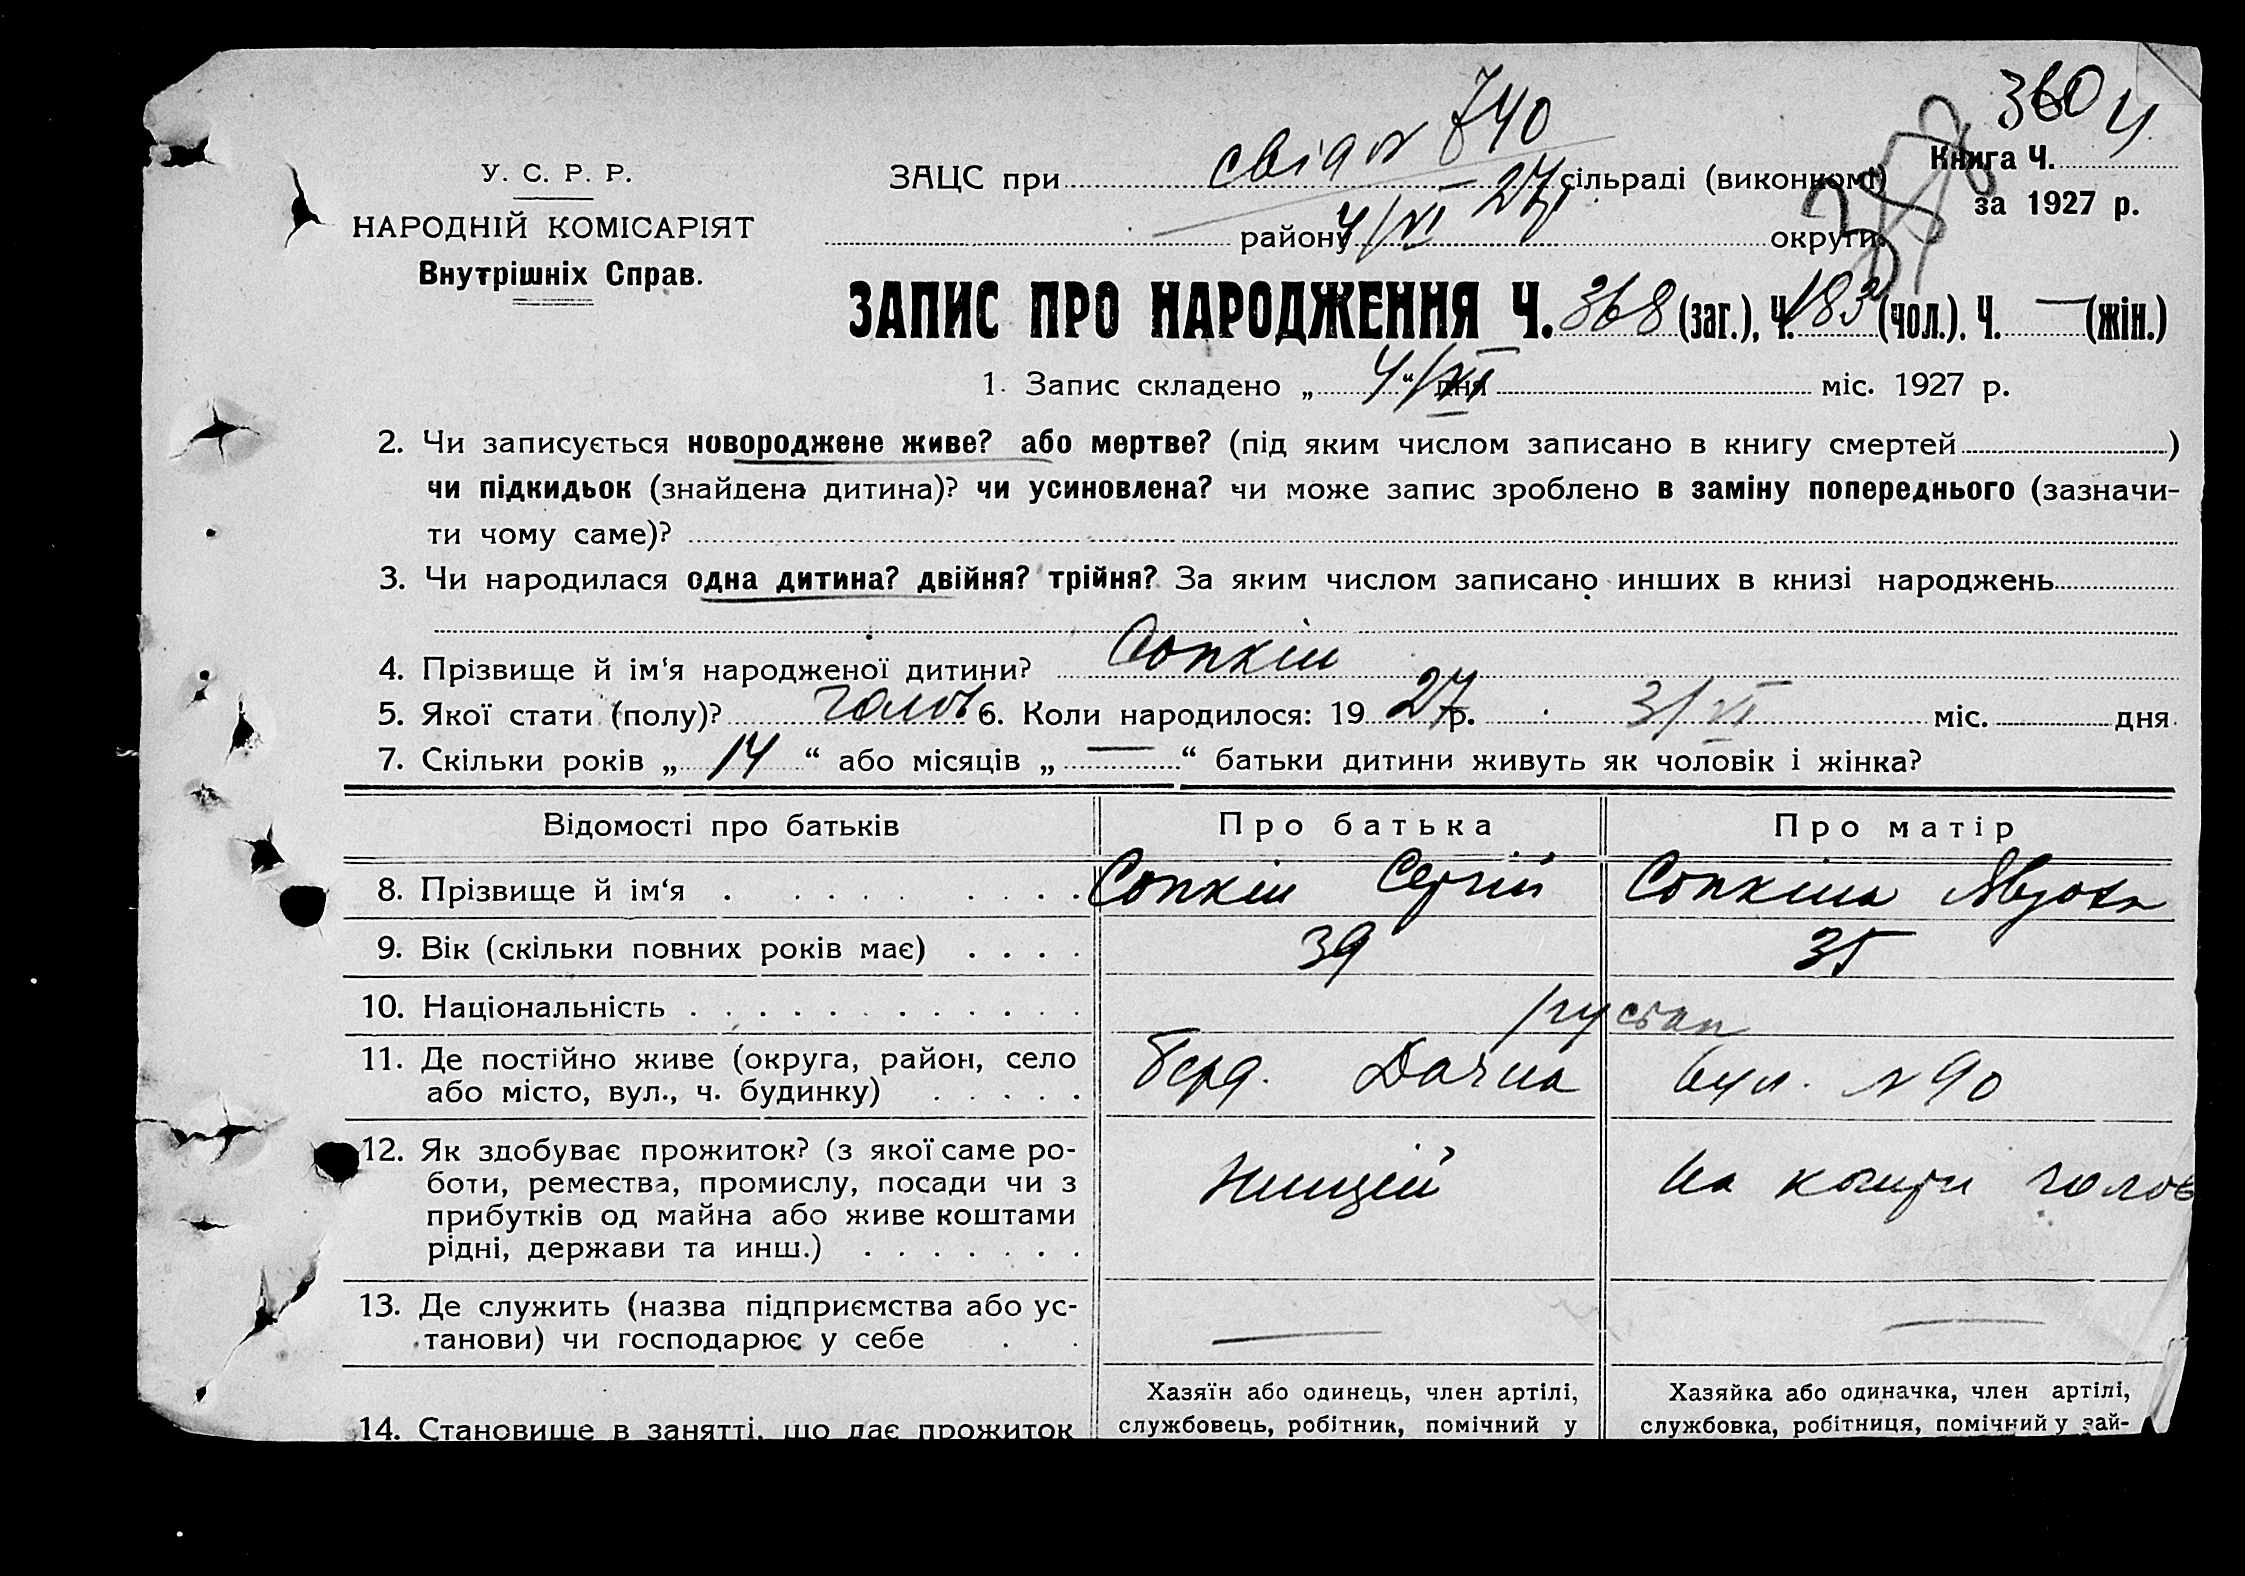 360 ч
У. С. Р. Р.
НАРОДНІЙ КОМІСАРІЯТ
Внутрішніх Справ.
ЗАЦС при свід № 740 сільраді (виконкомі)
Книга Ч.
за 1927 р.
району 4/VI – 27 округи
ЗАПИС ПРО НАРОДЖЕННЯ Ч. 368 (заг.), Ч. 183 (чол.). Ч. — (жін.)
1. Запис складено „ 4/VI “ дня міс. 1927 р.
2. Чи записується новороджене живе? або мертве? (під яким числом записано в книгу смертей )
чи підкидьок (знайдена дитина)? чи усиновлена? чи може запис зроблено в заміну попереднього (зазначи-
ти чому саме)?
3. Чи народилася одна дитина? двійня? трійня? За яким числом записано инших в книзі народжень
4. Прізвище й ім'я народженої дитини? Сопкін
5. Якої стати (полу)? чолов 6. Коли народилося: 1927 р. 3/VI міс. дня
7. Скільки років „ 14 “ або місяців „ — “ батьки дитини живуть як чоловік і жінка?
Відомості про батьків Про батька Про матір
8. Прізвище й ім'я Сопкін Сергій Сопкіна Явдоха
9. Вік (скільки повних років має) 39 35
10. Національність
11. Де постійно живе (округа, район, село
або місто, вул., ч. будинку) Берд. Дачна вул. № 90
12. Як здобуває прожиток? (з якої саме ро-
боти, ремества, промислу, посади чи з
прибутків од майна або живе коштами
рідні, держави та инш.) На кошти чолов
13. Де служить (назва підприємства або ус-
танови) чи господарює у себе — —
14. Становище в занятті, що дає прожиток
Хазяїн або одинець, член артілі,
службовець, робітник, помічний у
Хазяйка або одиначка, член артілі,
службовка, робітниця, помічний у зай-